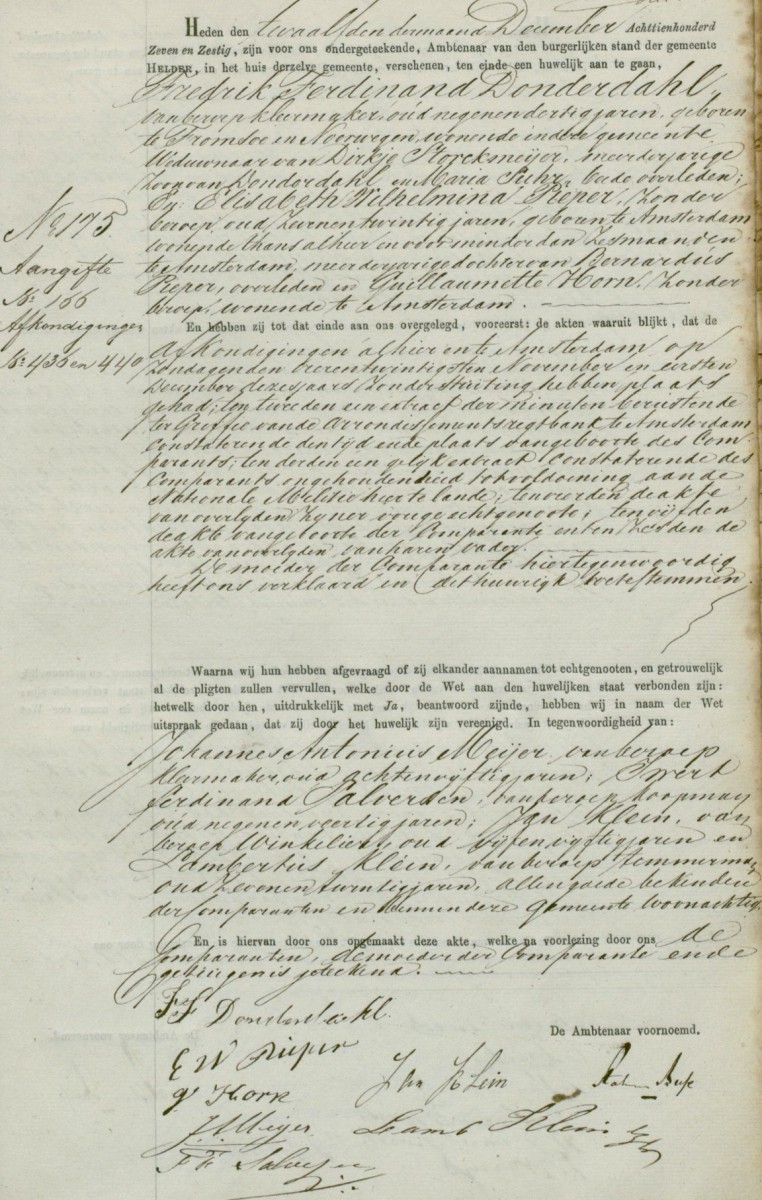 Heden den twaalfden der maand December Achttienhonderd
Zeven en Zestig, zijn voor ons ondergeteekende, Ambtenaar van den burgerlijken stand der gemeente
HELDER, in het huis derzelve gemeente, verschenen, ten einde een huwelijk aan te gaan,
Fredrik Ferdinand Donderdahl,
van beroep kleermaker, oud negenendertig jaren, geboren
te Tromsoe in Noorwegen, wonende in deze gemeente
Weduwnaar van Dirkje Storcksmeijer, meerderjarige
Zoon van Donderdahl en Maria beide overleden;
En: Elisabeth Wilhelmina Pieper, Zonder
beroep, oud Zevenentwintig jaren, geboren te Amsterdam
wonende thans alhier en voor minder dan Zes maanden
te Amsterdam, meerderjarige dochter van Bernardus
Pieper, overleden en Guillaumette Horn, Zonder
beroep, wonende te Amsterdam.
No 175
Aangifte
No 166
Afkondigingen
No 436 en 440
En hebben zij tot dat einde aan ons overgelegd, vooreerst: de akten waaruit blijkt, dat de
afkondigingen alhier en te Amsterdam op
Zondagen den vierentwintigsten November en eersten
December dezes jaars Zonder stuiting hebben plaats
gehad; ten tweeden een extract der minuten berustende
ter Griffie van de Arrondissements regtbank te Amsterdam
constaterende den tijd en de plaats van geboorte des Com-
parants; ten derden een gelijk extract Constaterende des
Comparants ongehoudenheid tot voldoening aan de
Nationale Militie hier te lande; ten vierden de akte
van overlijden Zijner vorige echtgenoote; ten vijfden
de akte van geboorte der Comparante en ten Zesden de
akte van overlijden van haren vader.
De moeder der Comparante hier tegenwoordig
heeft ons verklaard in dit huwelijk toe te stemmen.
Waarna wij hun hebben afgevraagd of zij elkander aannamen tot echtgenooten, en getrouwelijk
al de pligten zullen vervullen, welke door de Wet aan den huwelijken staat verbonden zijn:
hetwelk door hen, uitdrukkelijk met Ja, beantwoord zijnde, hebben wij in naam der Wet
uitspraak gedaan, dat zij door het huwelijk zijn vereenigd. In tegenwoordigheid van:
Johannes Antonius Meijer van beroep
kleermaker, oud achtenvijftig jaren;
Ferdinand Salversen, van beroep koopman
oud negenenveertig jaren; Jan Klein, van
beroep Winkelier, oud vijfenvijftig jaren en
Lambertus Klein, van beroep timmerman
oud Zevenentwintig jaren, allen goede bekenden
der Comparanten en binnen deze gemeente woonachtig.
En is hiervan door ons opgemaakt deze akte, welke na voorlezing door ons de
Comparanten, de moeder der Comparante en de
getuigen is geteekend.
FF Donderdahl.
De Ambtenaar voornoemd.
E W Pieper
g Horn
Jan Klein
J A Meijer
Lamb Klein